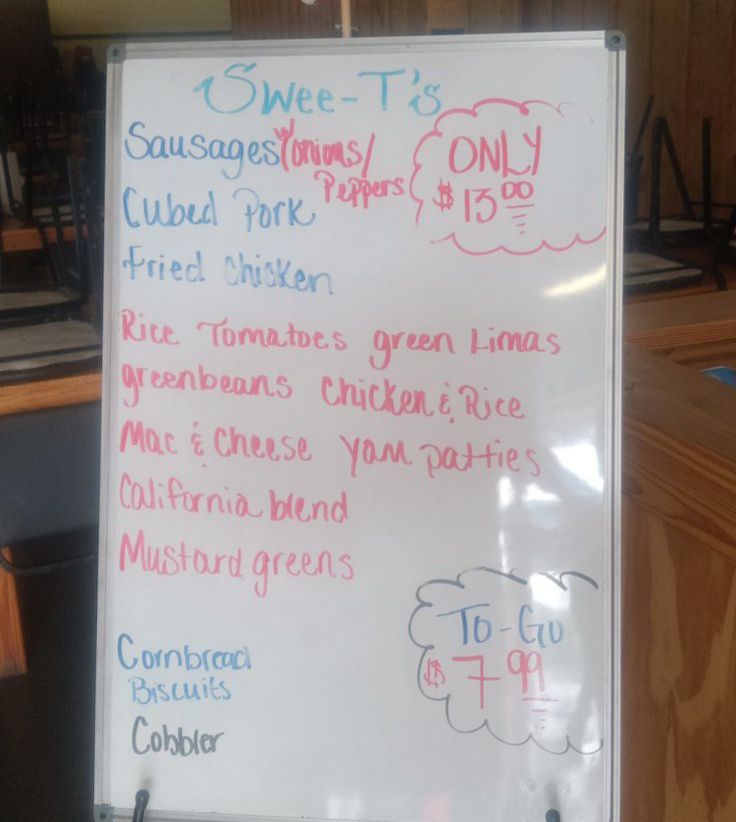 Swee-T's
Sausages w/onions/
Peppers
ONLY
$13.00
Cubed Pork
Fried Chicken
Rice Tomatoes green Limas
greenbeans Chicken & Rice
Mac & Cheese Yam patties
California blend
Mustard greens
To-Go
$7.99
Cornbread
Biscuits
Cobbler